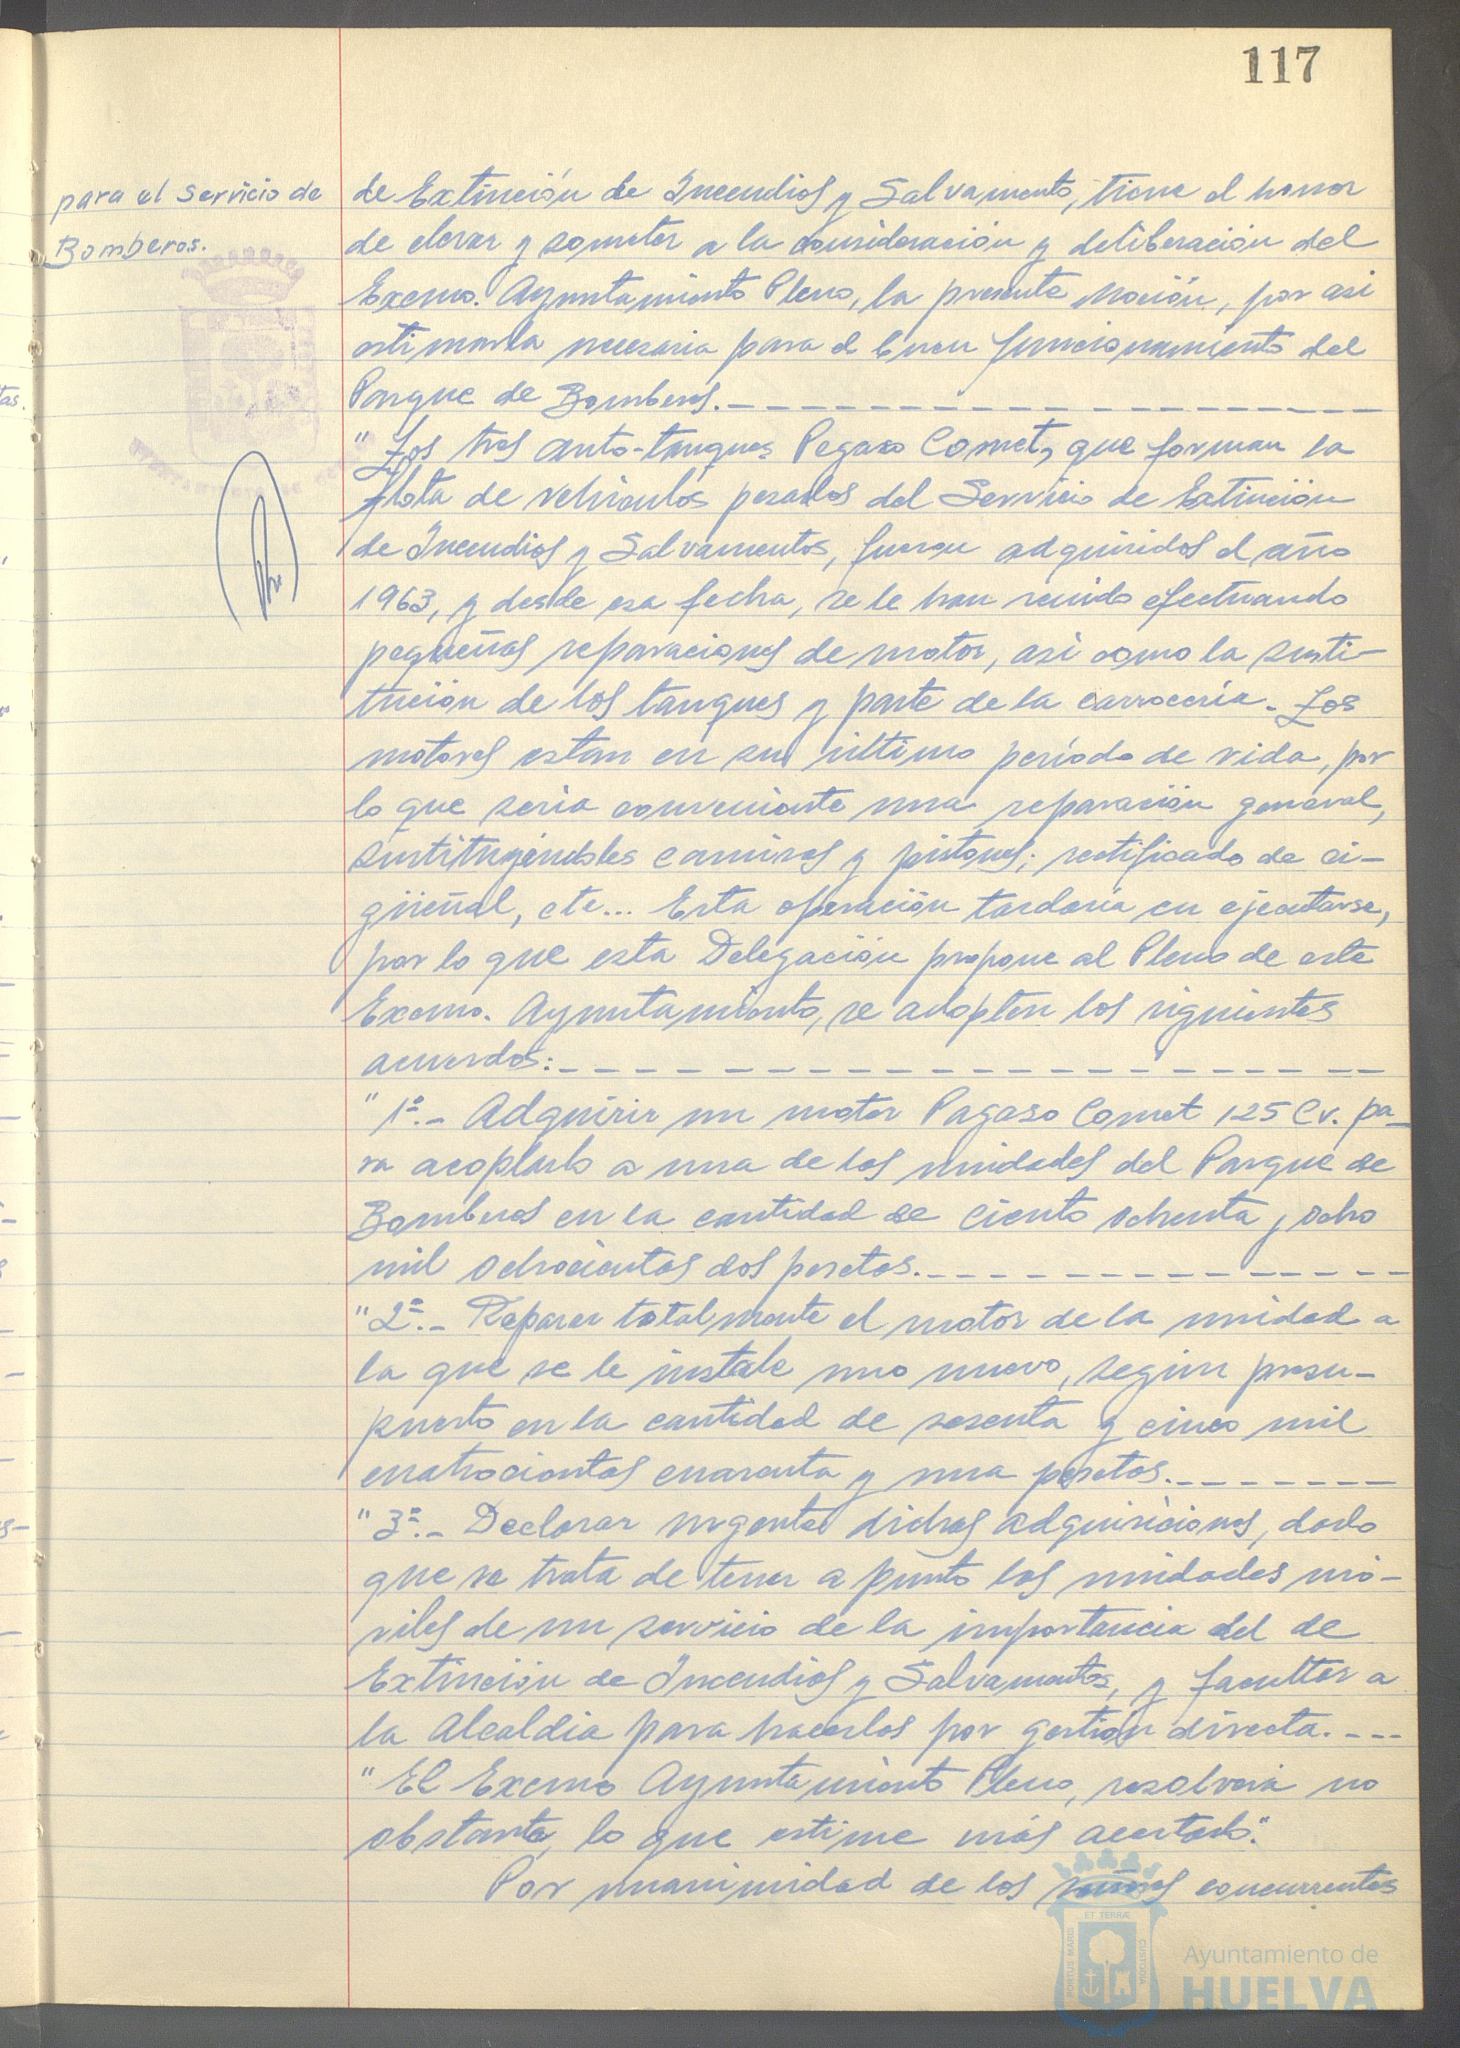 117
para el servicio de
Bomberos.
de Extinción de Incendios y Salvamento, tiene el honor
de elevar y someter a la consideración y deliberación del
Excmo. Ayuntamiento Pleno, la presente Moción, por asi
estimarla necesaria para el buen funcionamiento del
Parque de Bomberos.
"Los tres auto-tanques Pegaso Comet, que forman la
flota de vehiculos pesados del Servicio de Extinción
de Incendios y Salvamentos, fueron adquiridos el año
1963, y desde esa fecha, se le han venido efectuando
pequeñas reparaciones de motor, asi como la susti-
tución de los tanques y parte de la carroceria. Los
motores estan en su último período de vida, por
lo que seria conveniente una reparación general,
sustituyéndoles camisas y pistones; rectificado de ci-
güeñal, etc... Esta operación tardaría en ejecutarse,
por lo que esta Delegación propone al Pleno de este
Excmo. Ayuntamiento, se adopten los siguientes
acuerdos:
"1º.- Adquirir un motor Pagaso Comet 125 Cv. pa-
ra acoplarlo a una de las unidades del Parque de
Bomberos en la cantidad de ciento ochenta y ocho
mil ochocientas dos pesetas.
"2º.- Reparar totalmente el motor de la unidad a
la que se le instale uno nuevo, según presu-
puesto en la cantidad de sesenta y cinco mil
cuatrocientas cuarenta y una pesetas.
"3º.- Declarar urgentes dichas adquisiciones, dado
que se trata de tener a punto las unidades mó-
viles de un servicio de la importancia del de
Extinción de Incendios y Salvamentos, y facultar a
la Alcaldia para hacerlas por gestión directa.
"El Excmo Ayuntamiento Pleno, resolverá no
obstante, lo que estime más acertado".
Por unanimidad de los señores concurrentes
PORTUS MARIS
ET TERRÆ
CUSTODIA
Ayuntamiento de
HUELVA